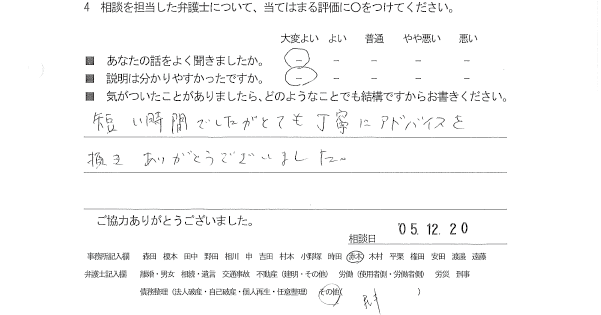 4 相談を担当した弁護士について、当てはまる評価に〇をつけてください。
大変よい よい 普通 やや悪い 悪い
■ あなたの話をよく聞きましたか。 － － － － －
■ 説明は分かりやすかったですか。 － － － － －
■ 気がついたことがありましたら、どのようなことでも結構ですからお書きください。
短い時間でしたがとても丁寧にアドバイスを
頂き ありがとうございました。
ご協力ありがとうございました。
相談日 '05.12.20
事務所記入欄 森田 榎本 田中 野田 相川 申 吉田 村木 小野塚 時田 赤木 木村 平栗 権田 安田 渡邉 遠藤
弁護士記入欄 離婚・男女 相続・遺言 交通事故 不動産（建明・その他） 労働（使用者側・労働者側） 労災 刑事
債務整理（法人破産・自己破産・個人再生・任意整理） その他（ ）